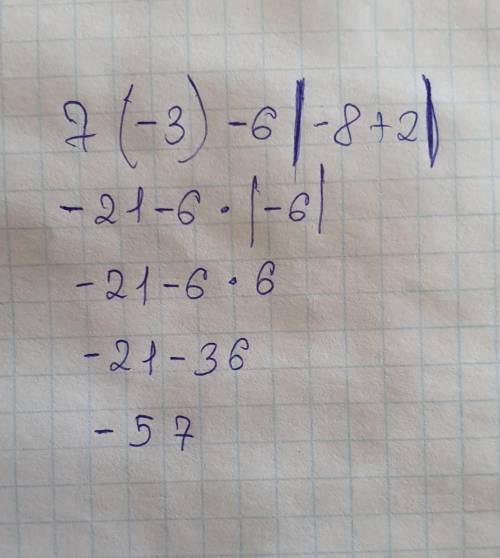 7 (-3) -6 |-8+2|
-21-6 · |-6|
-21-6 · 6
-21-36
-57